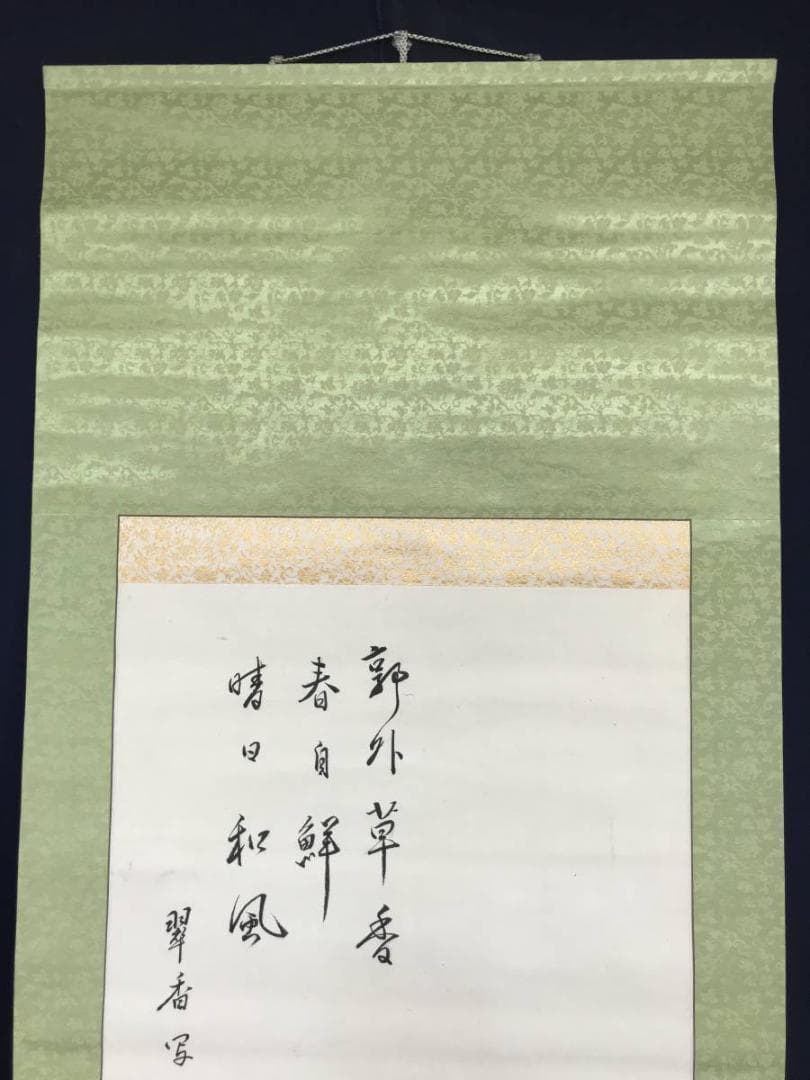 郭外草香
春自鮮
晴日和風
翠香写